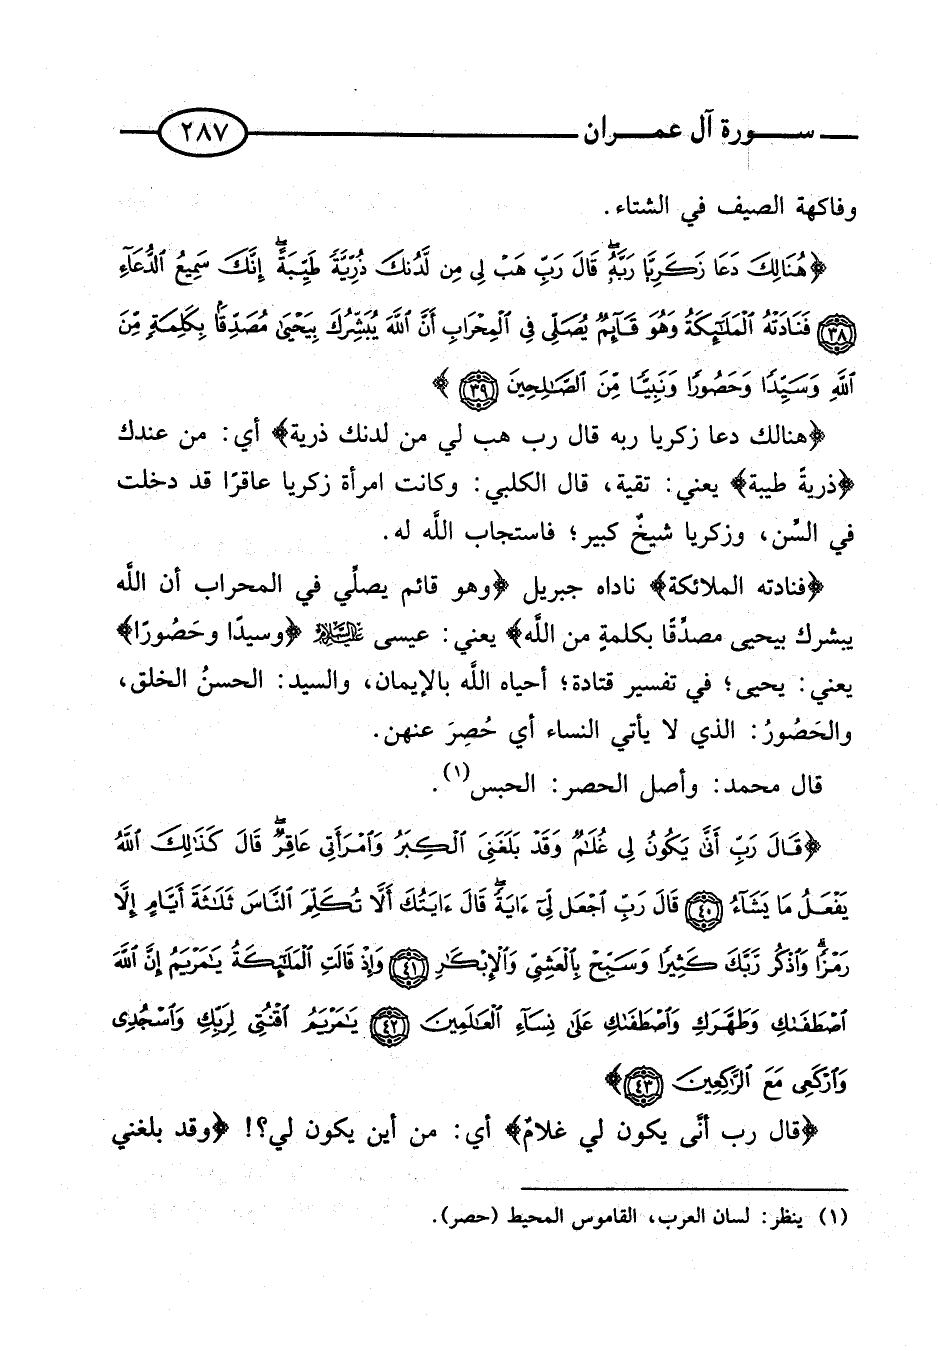 سورة آل عمران ٢٨٧
وفاكهة الصيف في الشتاء.
﴿هُنَالِكَ دَعَا زَكَرِيَّا رَبَّهُۥۖ قَالَ رَبِّ هَبۡ لِي مِن لَّدُنكَ ذُرِّيَّةٗ طَيِّبَةًۖ إِنَّكَ سَمِيعُ ٱلدُّعَآءِ
٣٨ فَنَادَتۡهُ ٱلۡمَلَٰٓئِكَةُ وَهُوَ قَآئِمٞ يُصَلِّي فِي ٱلۡمِحۡرَابِ أَنَّ ٱللَّهَ يُبَشِّرُكَ بِيَحۡيَىٰ مُصَدِّقَۢا بِكَلِمَةٖ مِّنَ
ٱللَّهِ وَسَيِّدٗا وَحَصُورٗا وَنَبِيّٗا مِّنَ ٱلصَّٰلِحِينَ ٣٩ ﴾
﴿هنالك دعا زكريا ربه قال رب هب لي من لدنك ذرية﴾ أي: من عندك
﴿ذريةً طيبة﴾ يعني: تقية، قال الكلبي: وكانت امرأة زكريا عاقرًا قد دخلت
في السِّن، وزكريا شيخٌ كبير؛ فاستجاب اللَّه له.
﴿فنادته الملائكة﴾ ناداه جبريل ﴿وهو قائم يصلِّي في المحراب أن اللَّه
يبشرك بيحيى مصدِّقًا بكلمةٍ من اللَّه﴾ يعني: عيسى عليه السلام ﴿وسيدًا وحَصُورًا﴾
يعني: يحيى؛ في تفسير قتادة؛ أحياه اللَّه بالإيمان، والسيد: الحسنُ الخلق،
والحَصُورُ: الذي لا يأتي النساء أي حُصِرَ عنهن.
قال محمد: وأصل الحصر: الحبس(١).
﴿قَالَ رَبِّ أَنَّىٰ يَكُونُ لِي غُلَٰمٞ وَقَدۡ بَلَغَنِيَ ٱلۡكِبَرُ وَٱمۡرَأَتِي عَاقِرٞۖ قَالَ كَذَٰلِكَ ٱللَّهُ
يَفۡعَلُ مَا يَشَآءُ ٤٠ قَالَ رَبِّ ٱجۡعَل لِّيٓ ءَايَةٗۖ قَالَ ءَايَتُكَ أَلَّا تُكَلِّمَ ٱلنَّاسَ ثَلَٰثَةَ أَيَّامٍ إِلَّا
رَمۡزٗاۗ وَٱذۡكُر رَّبَّكَ كَثِيرٗا وَسَبِّحۡ بِٱلۡعَشِيِّ وَٱلۡإِبۡكَٰرِ ٤١ وَإِذۡ قَالَتِ ٱلۡمَلَٰٓئِكَةُ يَٰمَرۡيَمُ إِنَّ ٱللَّهَ
ٱصۡطَفَىٰكِ وَطَهَّرَكِ وَٱصۡطَفَىٰكِ عَلَىٰ نِسَآءِ ٱلۡعَٰلَمِينَ ٤٢ يَٰمَرۡيَمُ ٱقۡنُتِي لِرَبِّكِ وَٱسۡجُدِي
وَٱرۡكَعِي مَعَ ٱلرَّٰكِعِينَ ٤٣﴾
﴿قال رب أنَّى يكون لي غلامٌ﴾ أي: من أين يكون لي؟! ﴿وقد بلغني
(١) ينظر: لسان العرب، القاموس المحيط (حصر).